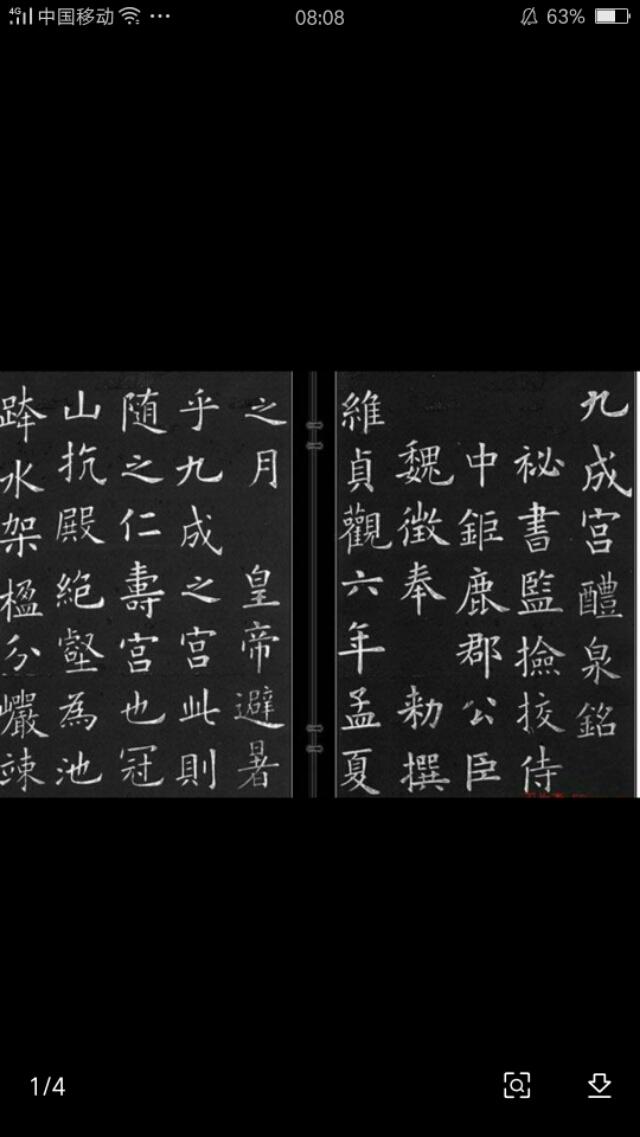 4G 中国移动 ··· 08:08 63%
九成宫醴泉銘
祕書監撿挍侍
中鉅鹿郡公臣
魏徴奉 勑撰
維貞觀六年孟夏
之月 皇帝避暑
乎九成之宫此則
随之仁壽宫也冠
山抗殿絶壑為池
跨水架楹分巗竦
1/4